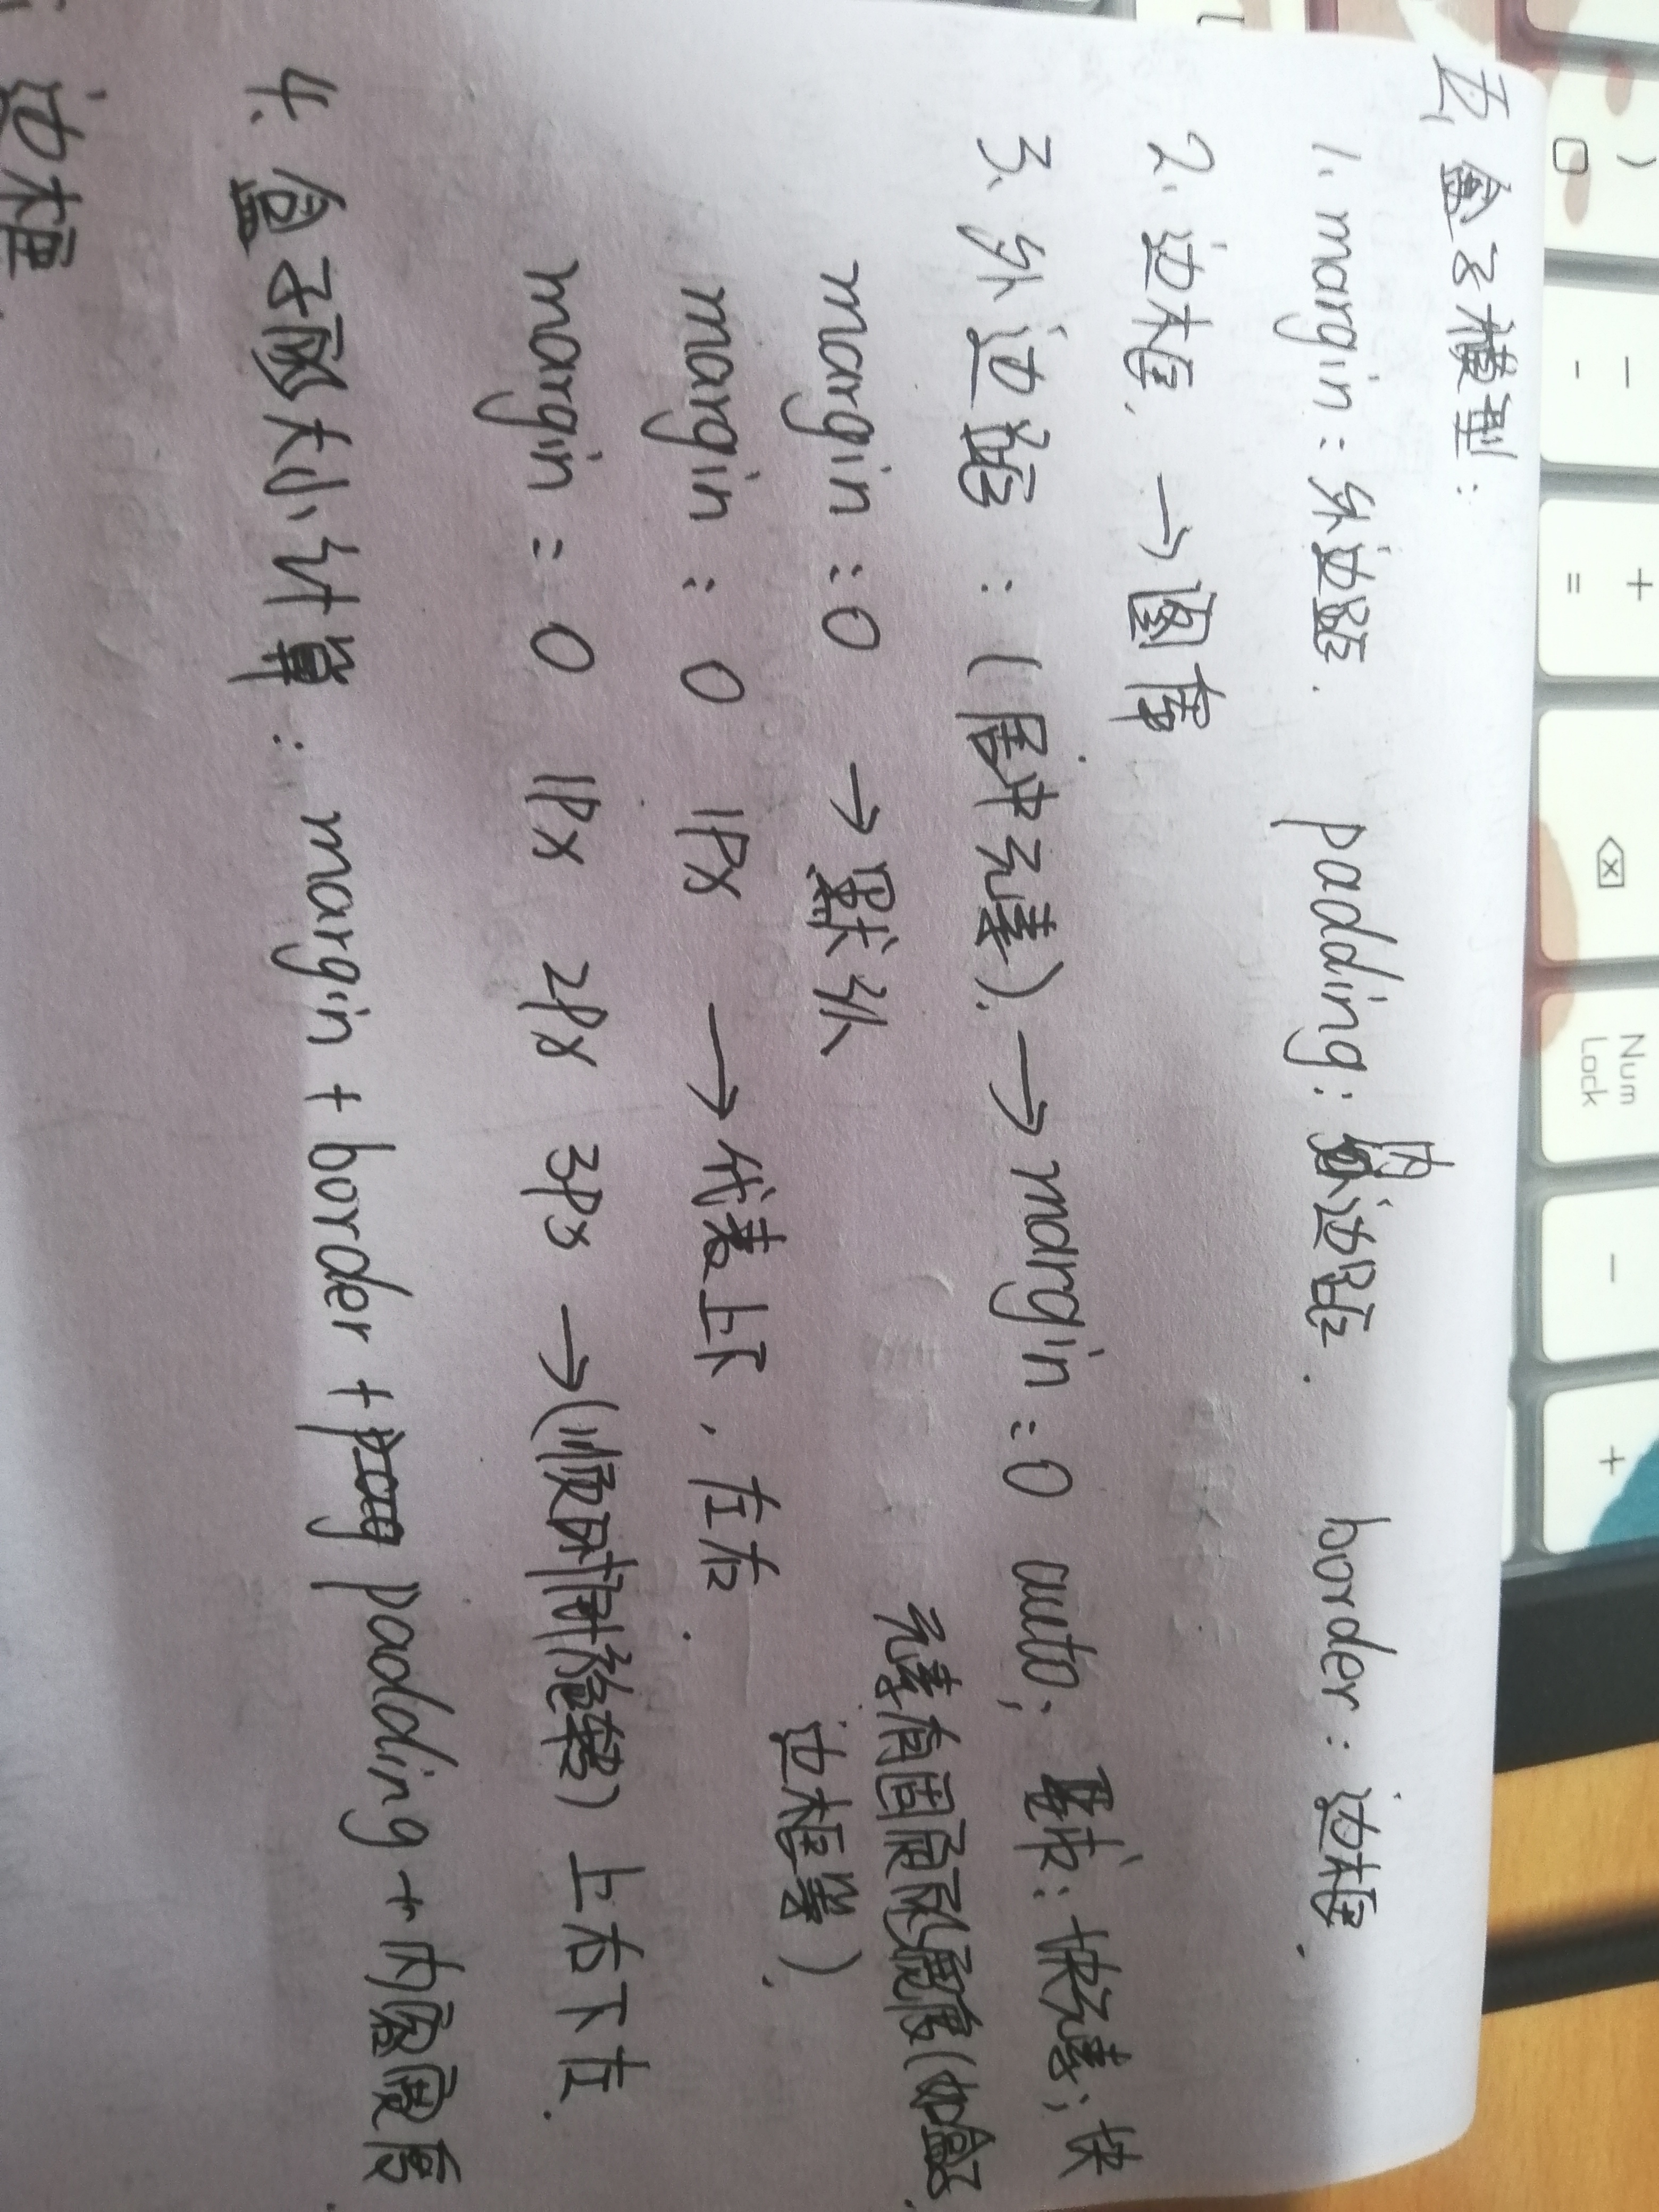 五、盒子模型：
1. margin：外边距. padding：内边距. border：边框.
2. 边框. → 圆角
3、外边距：(居中元素). → margin：0 auto; 要求：块元素；块
元素有固定的宽度(如盒子
边框等).
margin：0 → 默认
margin：0 1px → 代表上下，左右.
margin：0 1px 2px 3px → (顺时针旋转) 上右下左.
4. 盒子的大小计算：margin + border + padding + 内容宽度
边框
Num
Lock